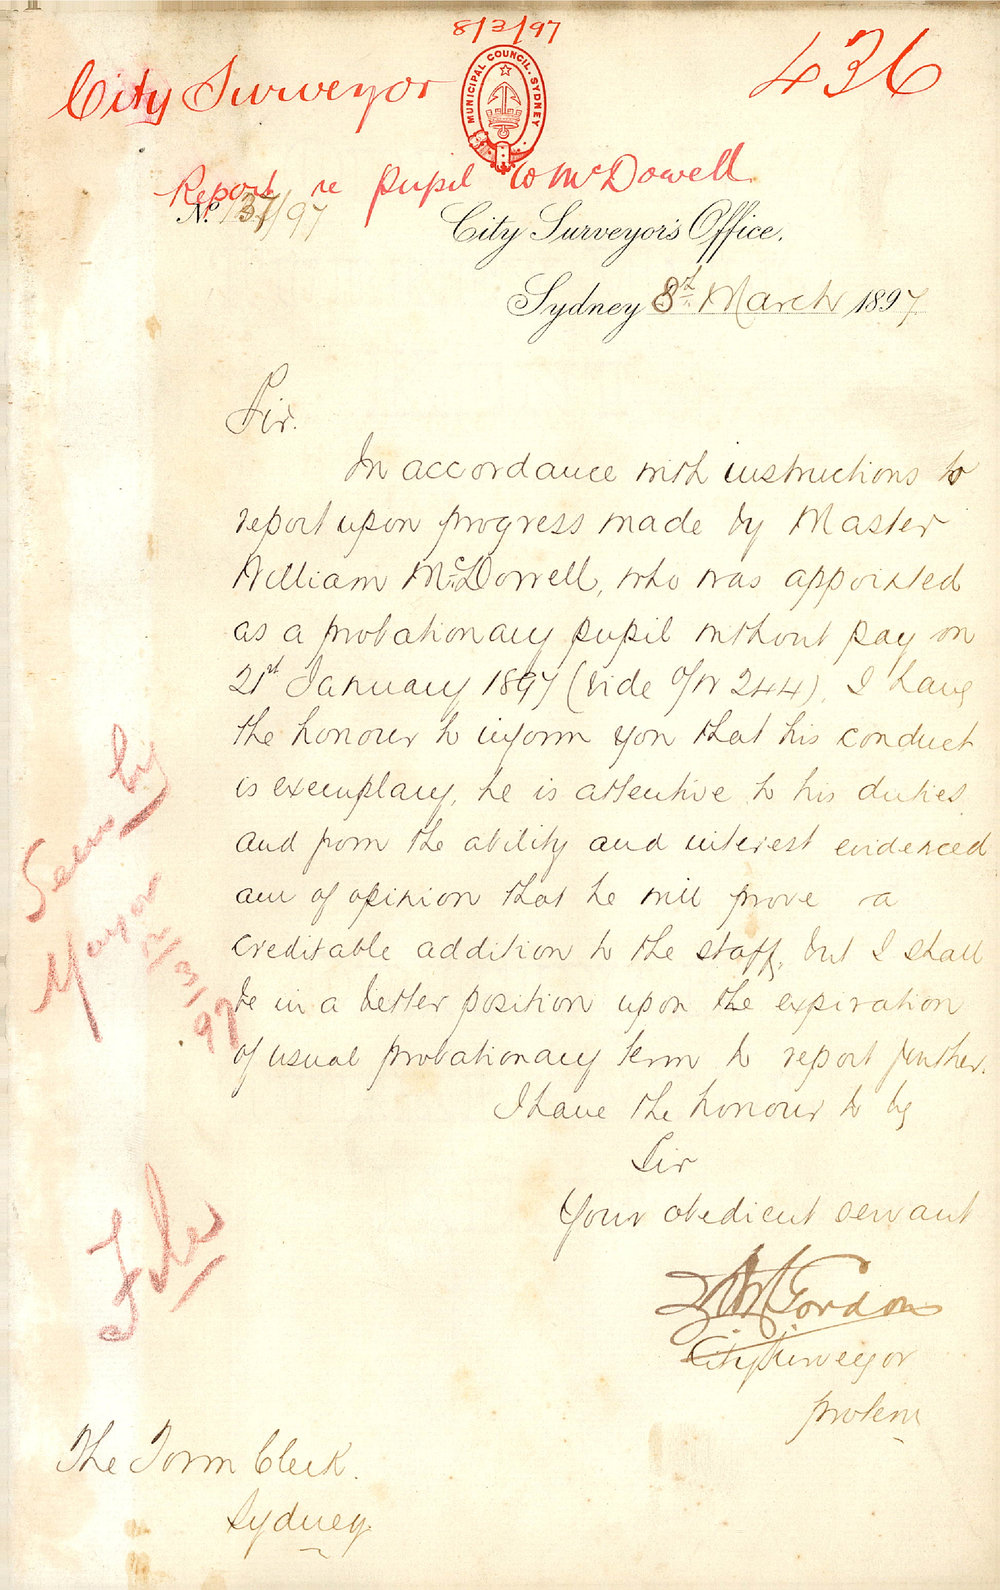 8/3/97
City Surveyor
436
MUNICIPAL COUNCIL. SYDNEY
Report re pupil W McDowell
No. 137/97
City Surveyor's Office.
Sydney 8th March 1897
Sir.
In accordance with instructions to
report upon progress made by Master
William McDowell, who was appointed
as a probationary pupil without pay on
21st January 1897 (vide 244). I have
the honour to inform you that his conduct
is exemplary, he is attentive to his duties
and from the ability and interest evidenced
am of opinion that he will prove a
creditable addition to the staff, but I shall
be in a better position upon the expiration
of usual probationary term to report further.
I have the honour to be
Sir
Your obedient servant
Gordon
City Surveyor
protem
The Town Clerk.
Sydney.
Seen by
Mayor
/3/97
File